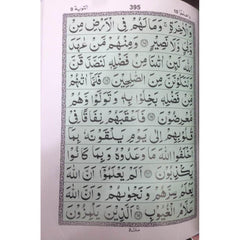 التوبة ٩ 395
اٰخِرَةِ ۚ وَمَا لَهُمْ فِى الْاَرْضِ مِنْ
وَّلِىٍّ وَّلَا نَصِيْرٍ ۞ وَمِنْهُمْ مَّنْ عٰهَدَ
لَئِنْ اٰتٰىنَا مِنْ فَضْلِهٖ لَنَصَّدَّقَنَّ
وَلَنَكُوْنَنَّ مِنَ الصّٰلِحِيْنَ ۞ فَلَمَّاۤ اٰتٰىهُمْ
مِّنْ فَضْلِهٖ بَخِلُوْا بِهٖ وَتَوَلَّوْا وَّهُمْ
مُّعْرِضُوْنَ ۞ فَاَعْقَبَهُمْ نِفَاقًا فِىْ
قُلُوْبِهِمْ اِلٰى يَوْمِ يَلْقَوْنَهٗ
اَخْلَفُوا اللّٰهَ مَا وَعَدُوْهُ وَبِمَا كَانُوْا
اَلَمْ يَعْلَمُوْۤا اَنَّ اللّٰهَ
يَعْلَمُ سِرَّهُمْ وَنَجْوٰىهُمْ وَاَنَّ اللّٰهَ
عَلَّامُ الْغُيُوْبِ ۞ اَلَّذِيْنَ يَلْمِزُوْنَ